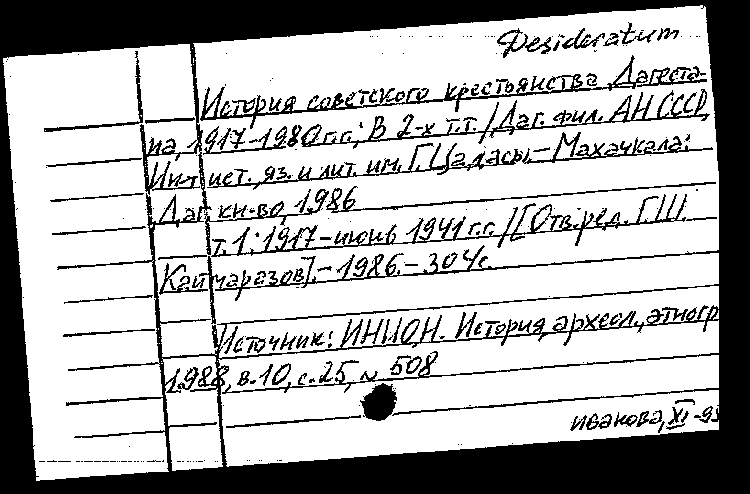 Desideratum
История советского крестьянства Дагеста-
на, 1917-1980 г.г.: В 2-х т.т. / Даг. фил. АН СССР,
Ин-т ист., яз. и лит. им. Г. Цадасы. - Махачкала:
Даг. кн-во, 1986
т. 1: 1917 - июнь 1941 г.г. / [Отв. ред. Г.Ш.
Каймаразов]. - 1986. - 304 с.
Источник: ИНИОН. История, археол., этногр
1988, в. 10, с. 25, № 508
Иванова, XI-